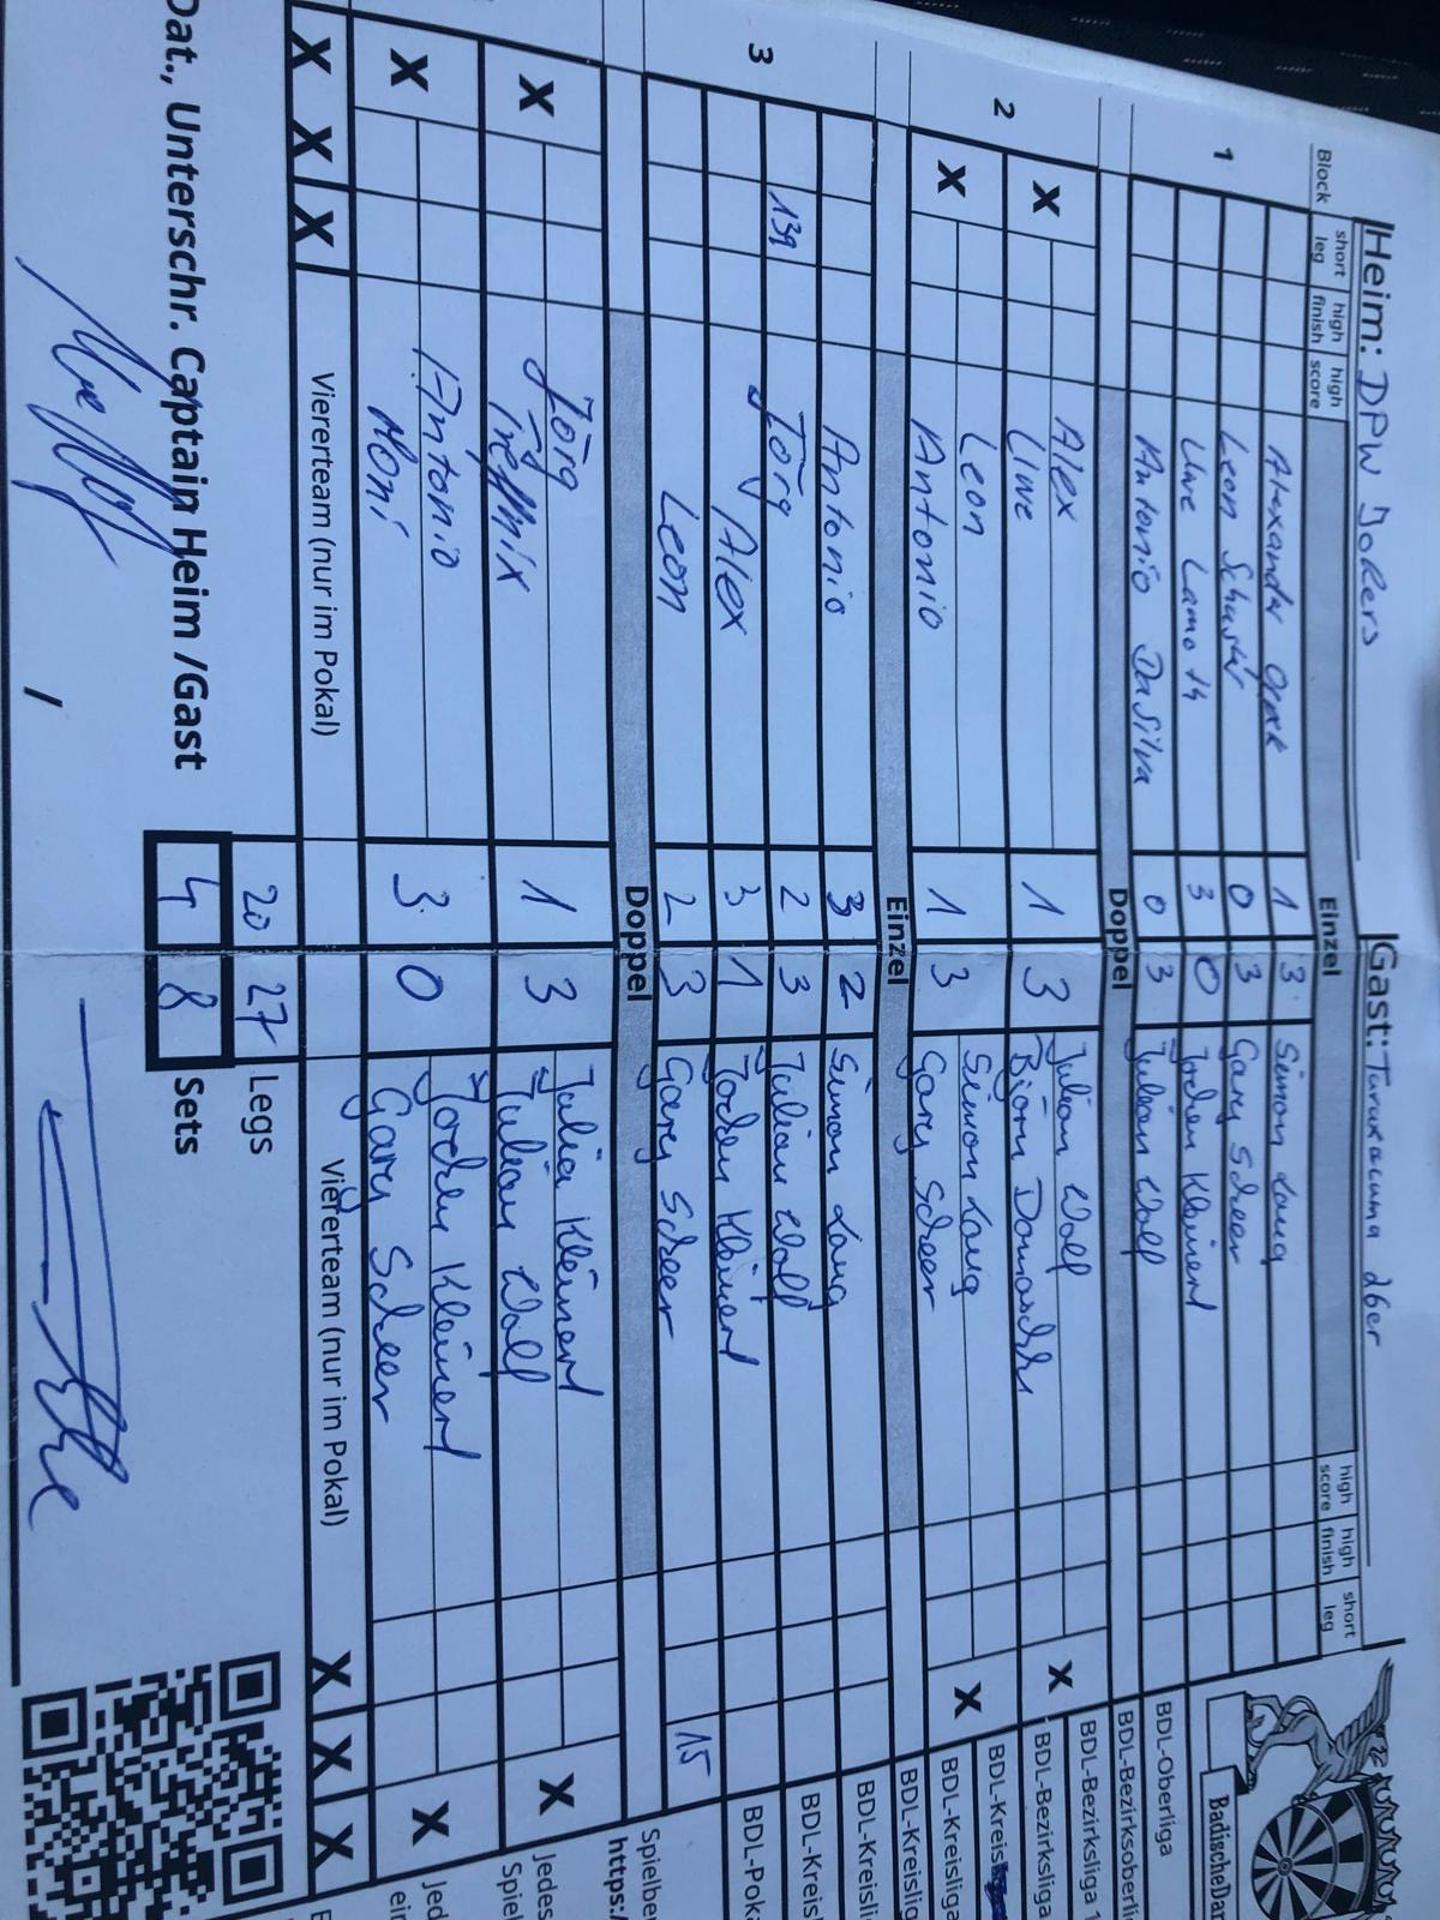 Heim: DPW Jokers Gast: Turuxacuma 26er
Block short leg high finish high score Einzel Einzel high score high finish short leg
1 Alexander 1 3 Simon Lang
Leon Schuster 0 3 Gary Scheer
Uwe 3 0 Jochen Kleinert
Antonio Da Silva 0 3 Julian Wolf
Doppel
2 X Alex 1 3 Julian Wolf X
Uwe Björn
X Leon 1 3 Simon Lang X
Antonio Gary Scheer
Einzel
3 Antonio 3 2 Simon Lang
139 Jörg 2 3 Julian Wolf
Alex 3 1 Jochen Kleinert
Leon 2 3 Gary Scheer 15
Doppel
X Jörg 1 3 Julia Kleinert X
Julian Wolf
X Antonio 3 0 Jochen Kleinert X
Moni Gary Scheer
X X X Viererteam (nur im Pokal) Viererteam (nur im Pokal) X X X
20 27 Legs
Dat., Unterschr. Captain Heim /Gast 4 8 Sets
/
BadischeDar
BDL-Oberliga
BDL-Bezirksoberli
BDL-Bezirksliga 1
BDL-Bezirksliga
BDL-Kreis
BDL-Kreisliga
BDL-Kreislig
BDL-Kreisli
BDL-Kreisl
BDL-Poka
Spielber
https:/
Jedes
Spiel
Jed
ein